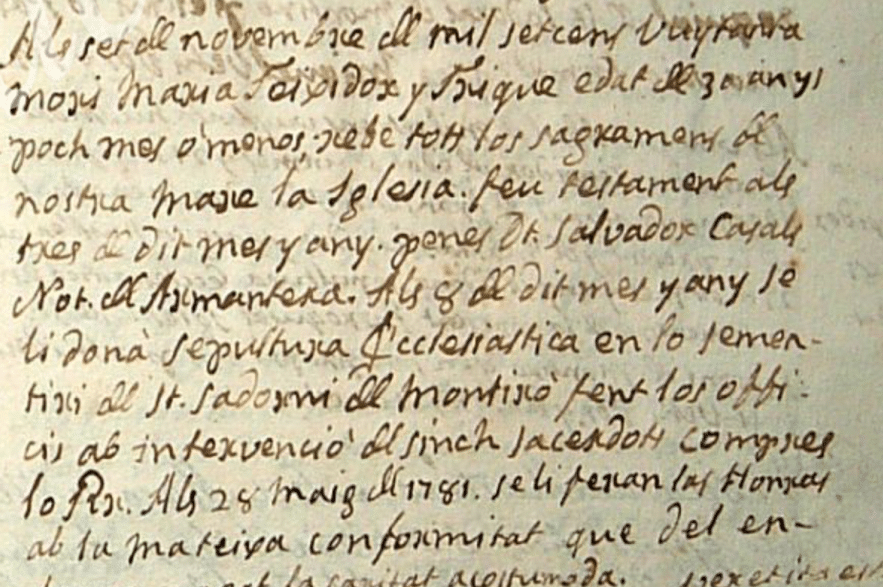 Als set de novembre de mil setcens vuytanta
morí Maria Teixidor y Trique edat de 30 anys
poch mes o menos, rebé tots los sagraments de
nostra mare la Iglesia. feu testament als
tres de dit mes y any. penes Dt. Salvador Casals
Not. de Armantera. Als 8 de dit mes y any se
li donà sepultura Ecclesiastica en lo semen-
tiri de St. Sadorni de Montiró fent los offi-
cis ab intervenció de sinch sacerdots compres
lo Rr. Als 28 Maig de 1781. se li feran las Honras
ab la mateixa conformitat que del en-
la caritat acostumada.